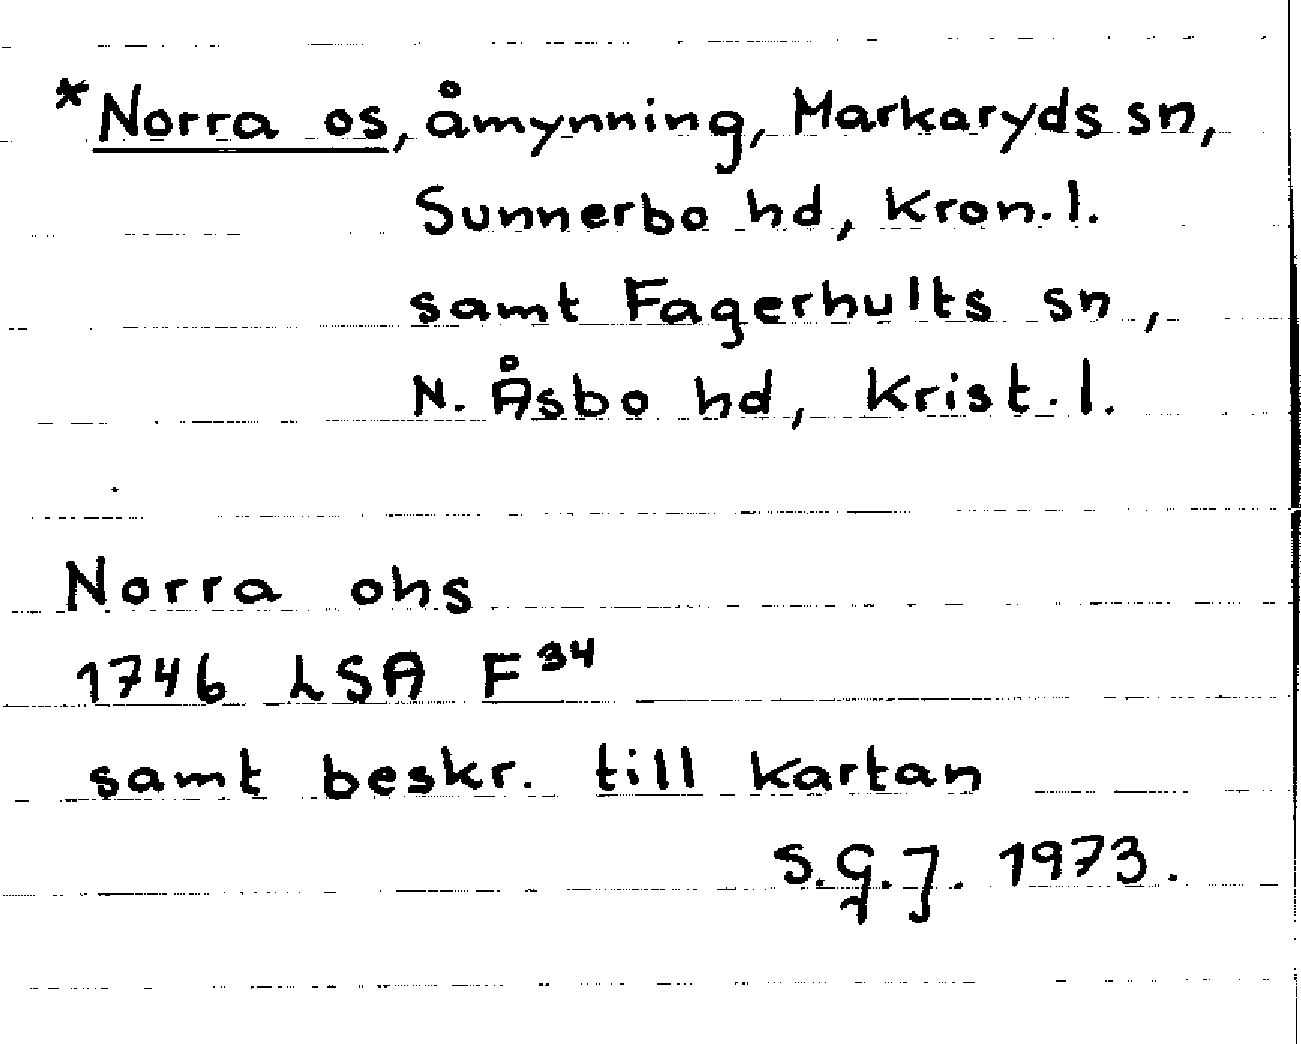 *Norra os, åmynning, Markaryds sn,
Sunnerbo hd, Kron. l.
samt Fagerhults sn,
N. Åsbo hd, Krist. l.
Norra ohs
1746 LSA F 34
samt beskr. till kartan
S.G.J. 1973.